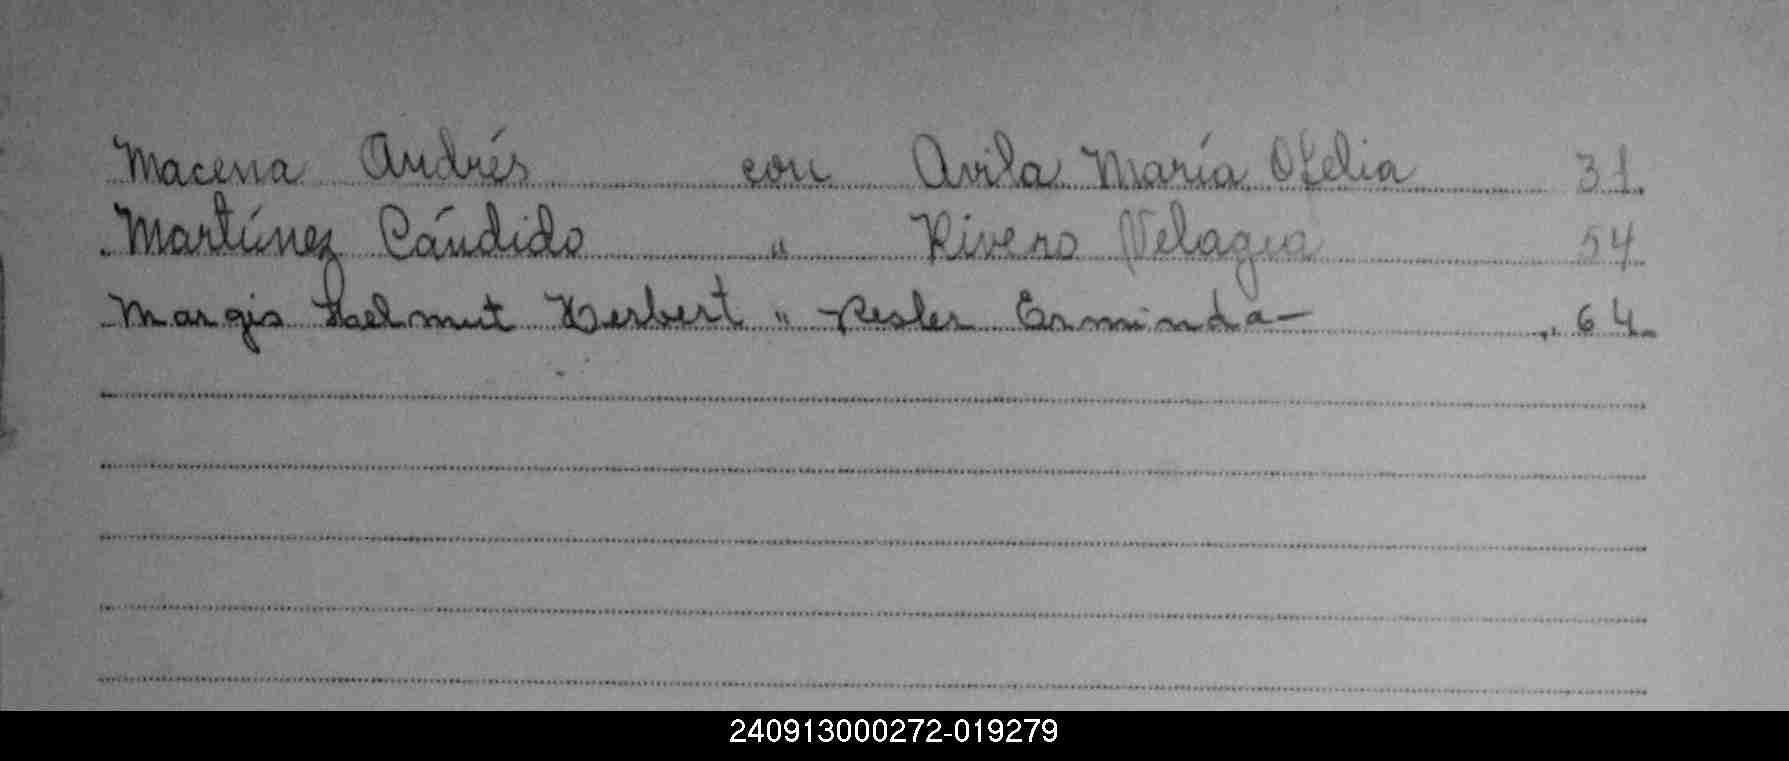 Macena Andrés con Avila María Ofelia 31.
Martínez Cándido " Rivero Pelagia 54
Margis Helmut Herbert " Resler Erminda - 64.
240913000272-019279